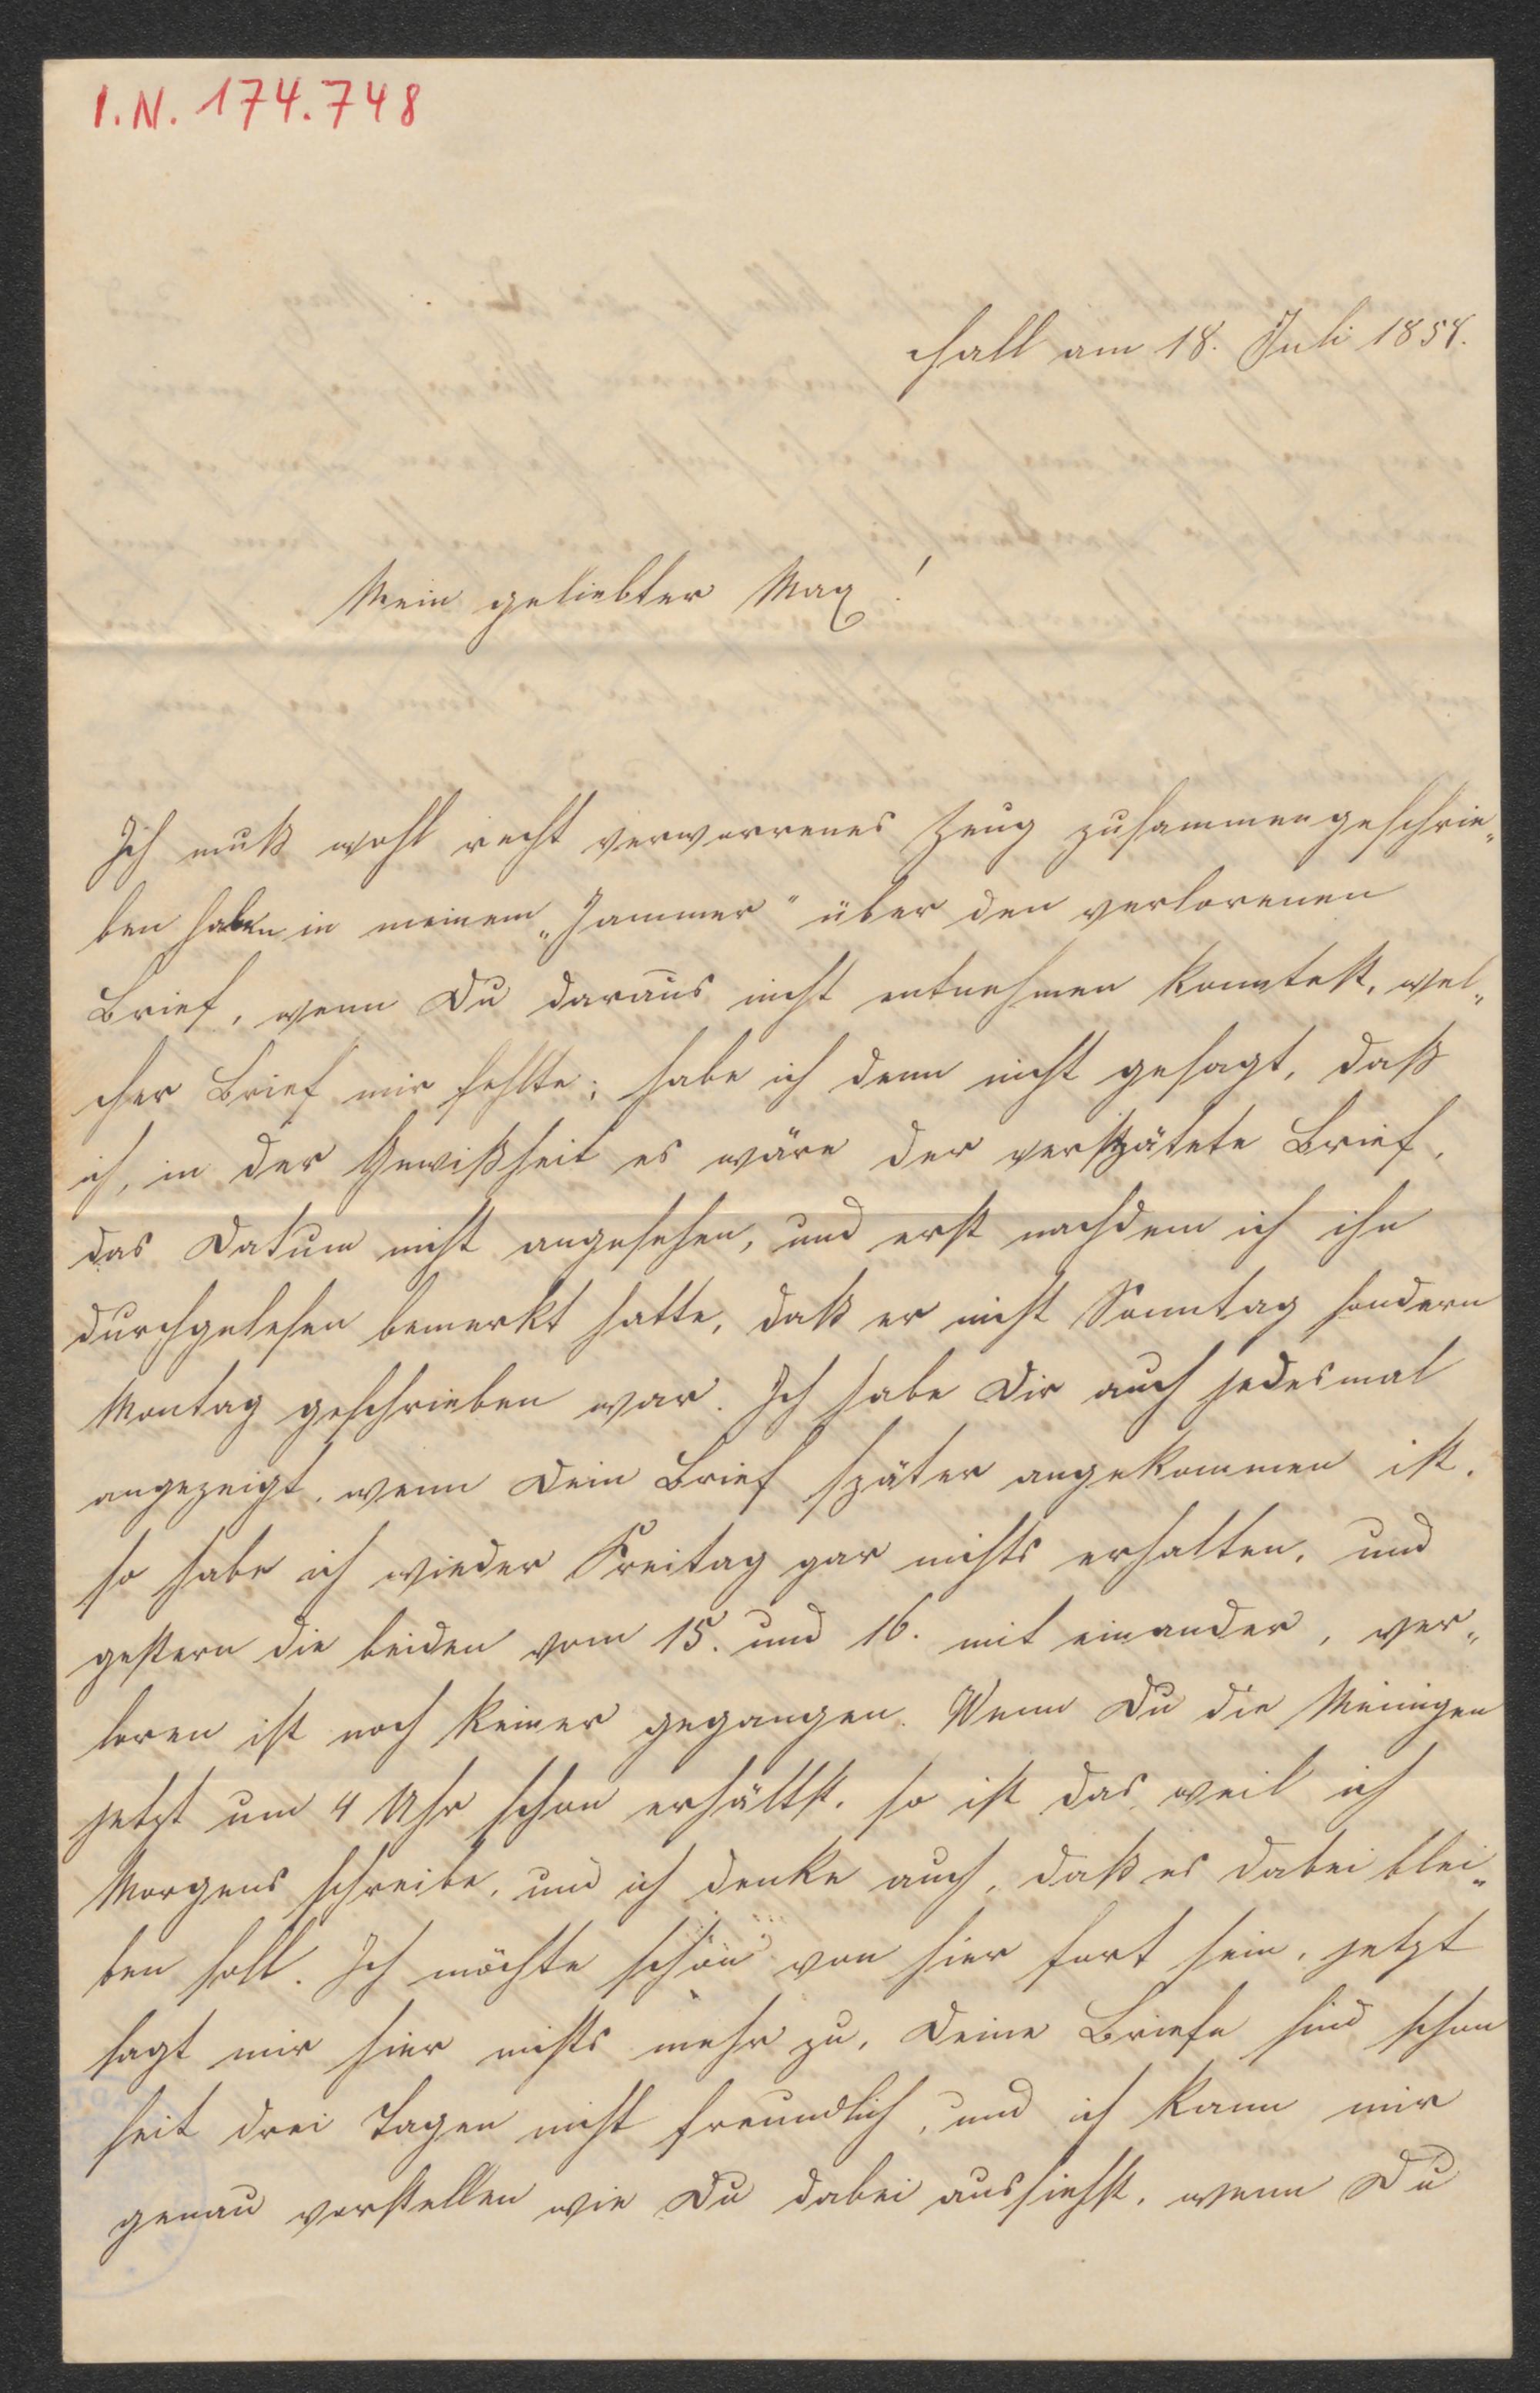 I.N. 174.748
Hall am 18. Juli 1858.
Mein geliebter Max!
Ich muß wohl recht verworrenes Zeug zusammengeschrie„
ben haben in meinem „Jammer" über den verlorenen
Brief, wenn Du daraus nicht entnehmen konntest, wel„
cher Brief mir fehlte; habe ich denn nicht gesagt, daß
ich, in der Gewißheit es wäre der verspätete Brief,
das Datum nicht angesehen, und erst nachdem ich ihn
durchgelesen bemerkt hatte, daß er nicht Sonntag sondern
Montag geschrieben war. Ich habe Dir auch jedesmal
angezeigt, wenn Dein Brief später angekommen ist.
so habe ich wieder Freitag gar nichts erhalten, und
gestern die beiden vom 15. und 16. mit einander, ver„
loren ist noch keiner gegangen. Wenn Du die Meinigen
jetzt um 4 Uhr schon erhältst, so ist das, weil ich
Morgens schreibe, und ich denke auch, daß es dabei blei„
ben soll. Ich möchte schon von hier fort sein, jetzt
sagt mir hier nichts mehr zu, Deine Briefe sind schon
seit drei Tagen nicht freundlich, und ich kann mir
genau vorstellen wie Du dabei aussiehst, wenn Du